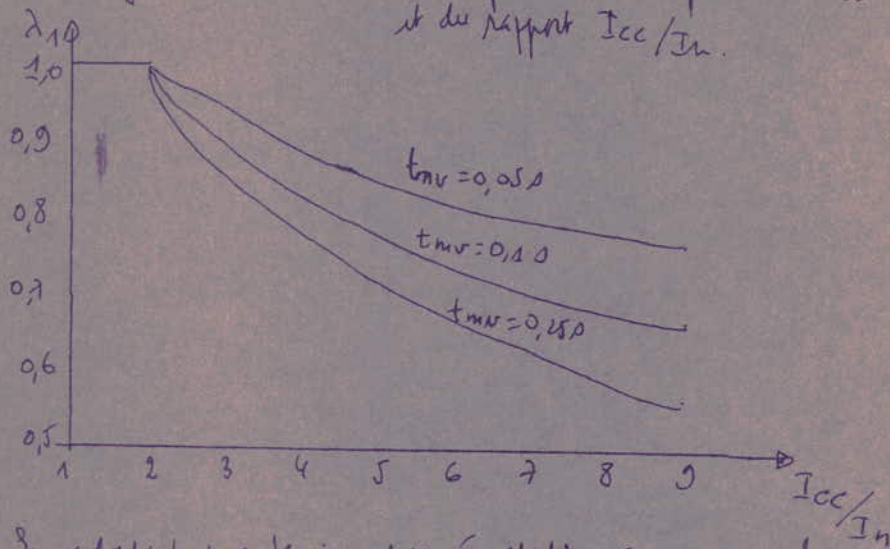 et du rapport Icc/In.
λ1
1,0
0,9
0,8
0,7
0,6
0,5
tmv = 0,05 s
tmv = 0,1 s
tmv = 0,25 s
1 2 3 4 5 6 7 8 9
Icc/In